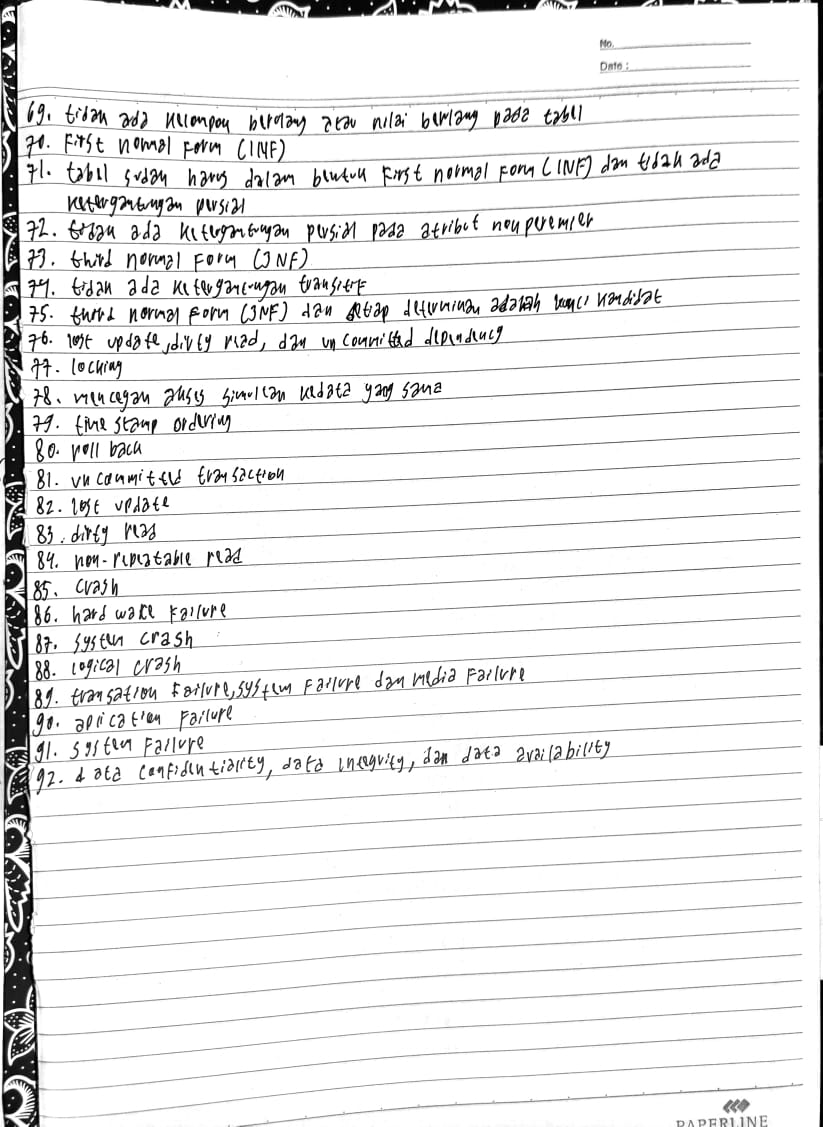 No.
Date :
69. tidak ada kelompok berulang atau nilai berulang pada tabel
70. First normal Form (1NF)
71. tabel sudah harus dalam bentuk First normal Form (1NF) dan tidak ada
ketergantungan persial
72. tidak ada ketergantungan persial pada atribut non peremier
73. third normal Form (3NF)
74. tidak ada ketergantungan transitif
75. third normal Form (3NF) dan setiap determinan adalah kunci kandidat
76. lost update, dirty read, dan un committed dependency
77. locking
78. mencegah akses simultan kedata yang sama
79. time stamp ordering
80. roll back
81. un committed transaction
82. lost update
83. dirty read
84. non-repeatable read
85. crash
86. hard ware Failure
87. system crash
88. logical crash
89. transation Failure, system Failure dan media Failure
90. aplication Failure
91. system Failure
92. data confidentiality, data integrity, dan data availability
PAPERLINE